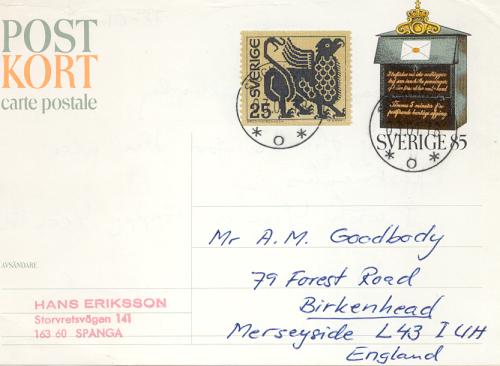 POST
KORT
carte postale
SVERIGE
25
SVERIGE 85
AVSÄNDARE
HANS ERIKSSON
Storvretsvägen 141
163 60 SPÅNGA
Mr A.M. Goodbody
79 Forest Road
Birkenhead
Merseyside L43 1UH
England